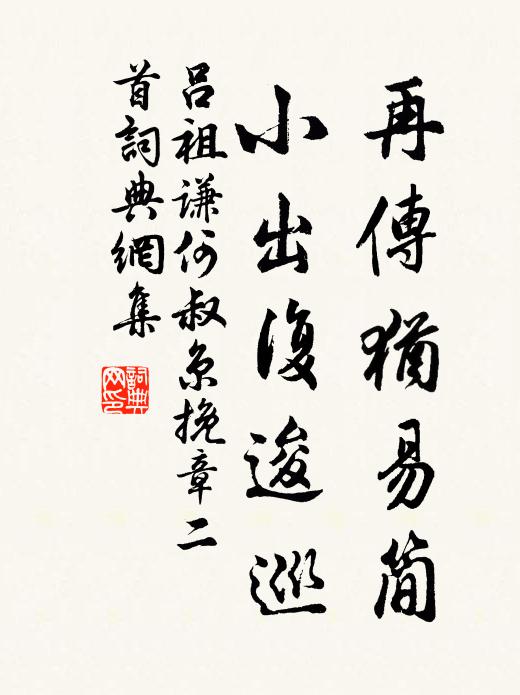 再傳猶易簡
小出復逡巡
呂祖謙何叔京挽章二
首詞典網集
詞典
网印